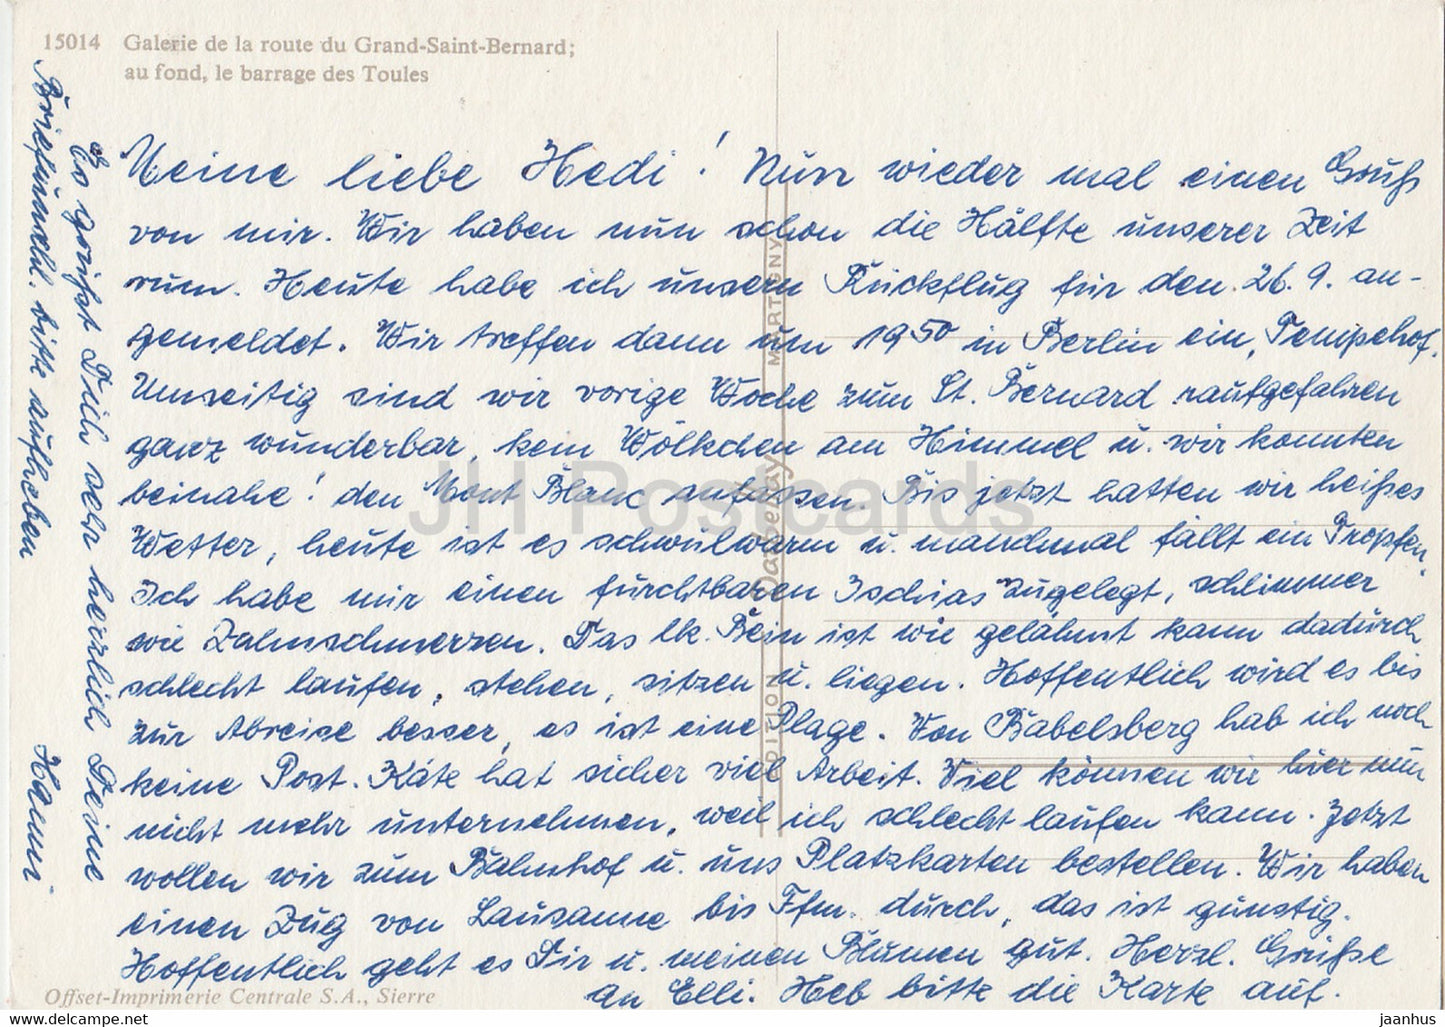 15014 Galerie de la route du Grand-Saint-Bernard;
au fond, le barrage des Toules
Meine liebe Hedi! Nun wieder mal einen Gruß
von mir. Wir haben nun schon die Hälfte unserer Zeit
rum. Heute habe ich unsern Rückflug für den 26. 9. an-
gemeldet. Wir treffen dann um 19 50 in Berlin ein, Tempehof.
Umseitig sind wir vorige Woche zum St. Bernard raufgefahren
ganz wunderbar, kein Wölkchen am Himmel u. wir konnten
beinahe! den Mont Blanc anfassen. Bis jetzt hatten wir heißes
Wetter, heute ist es schwülwarm u. manchmal fällt ein Tropfen.
Ich habe mir einen furchtbaren Ischias zugelegt, schlimmer
wie Zahnschmerzen. Das lk. Bein ist wie gelähmt kann dadurch
schlecht laufen, stehen, sitzen u. liegen. Hoffentlich wird es bis
zur Abreise besser, es ist eine Plage. Von Babelsberg hab ich noch
keine Post. Käte hat sicher viel Arbeit. Viel können wir hier nun
nicht mehr unternehmen, weil ich schlecht laufen kann. Jetzt
wollen wir zum Bahnhof u. uns Platzkarten bestellen. Wir haben
einen Zug von Lausanne bis Ffm. durch, das ist günstig.
Hoffentlich geht es Dir u. meinen Blumen gut. Herzl. Grüße
an Elli. Heb bitte die Karte auf.
Es grüßt Dich sehr herzlich Deine
Hanni
Briefumschl. bitte aufheben
EDITION Darbellay MARTIGNY
Offset-Imprimerie Centrale S.A., Sierre
JH Postcards
hippostcard.com/store/jh-postcards
jaanhus